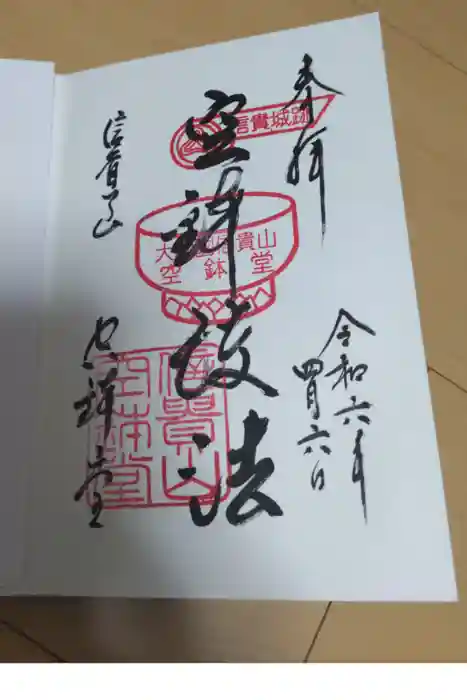 奉拝
令和六年
四月六日
信貴城跡
空鉢護法
信貴山
空鉢堂
信貴山
空鉢堂